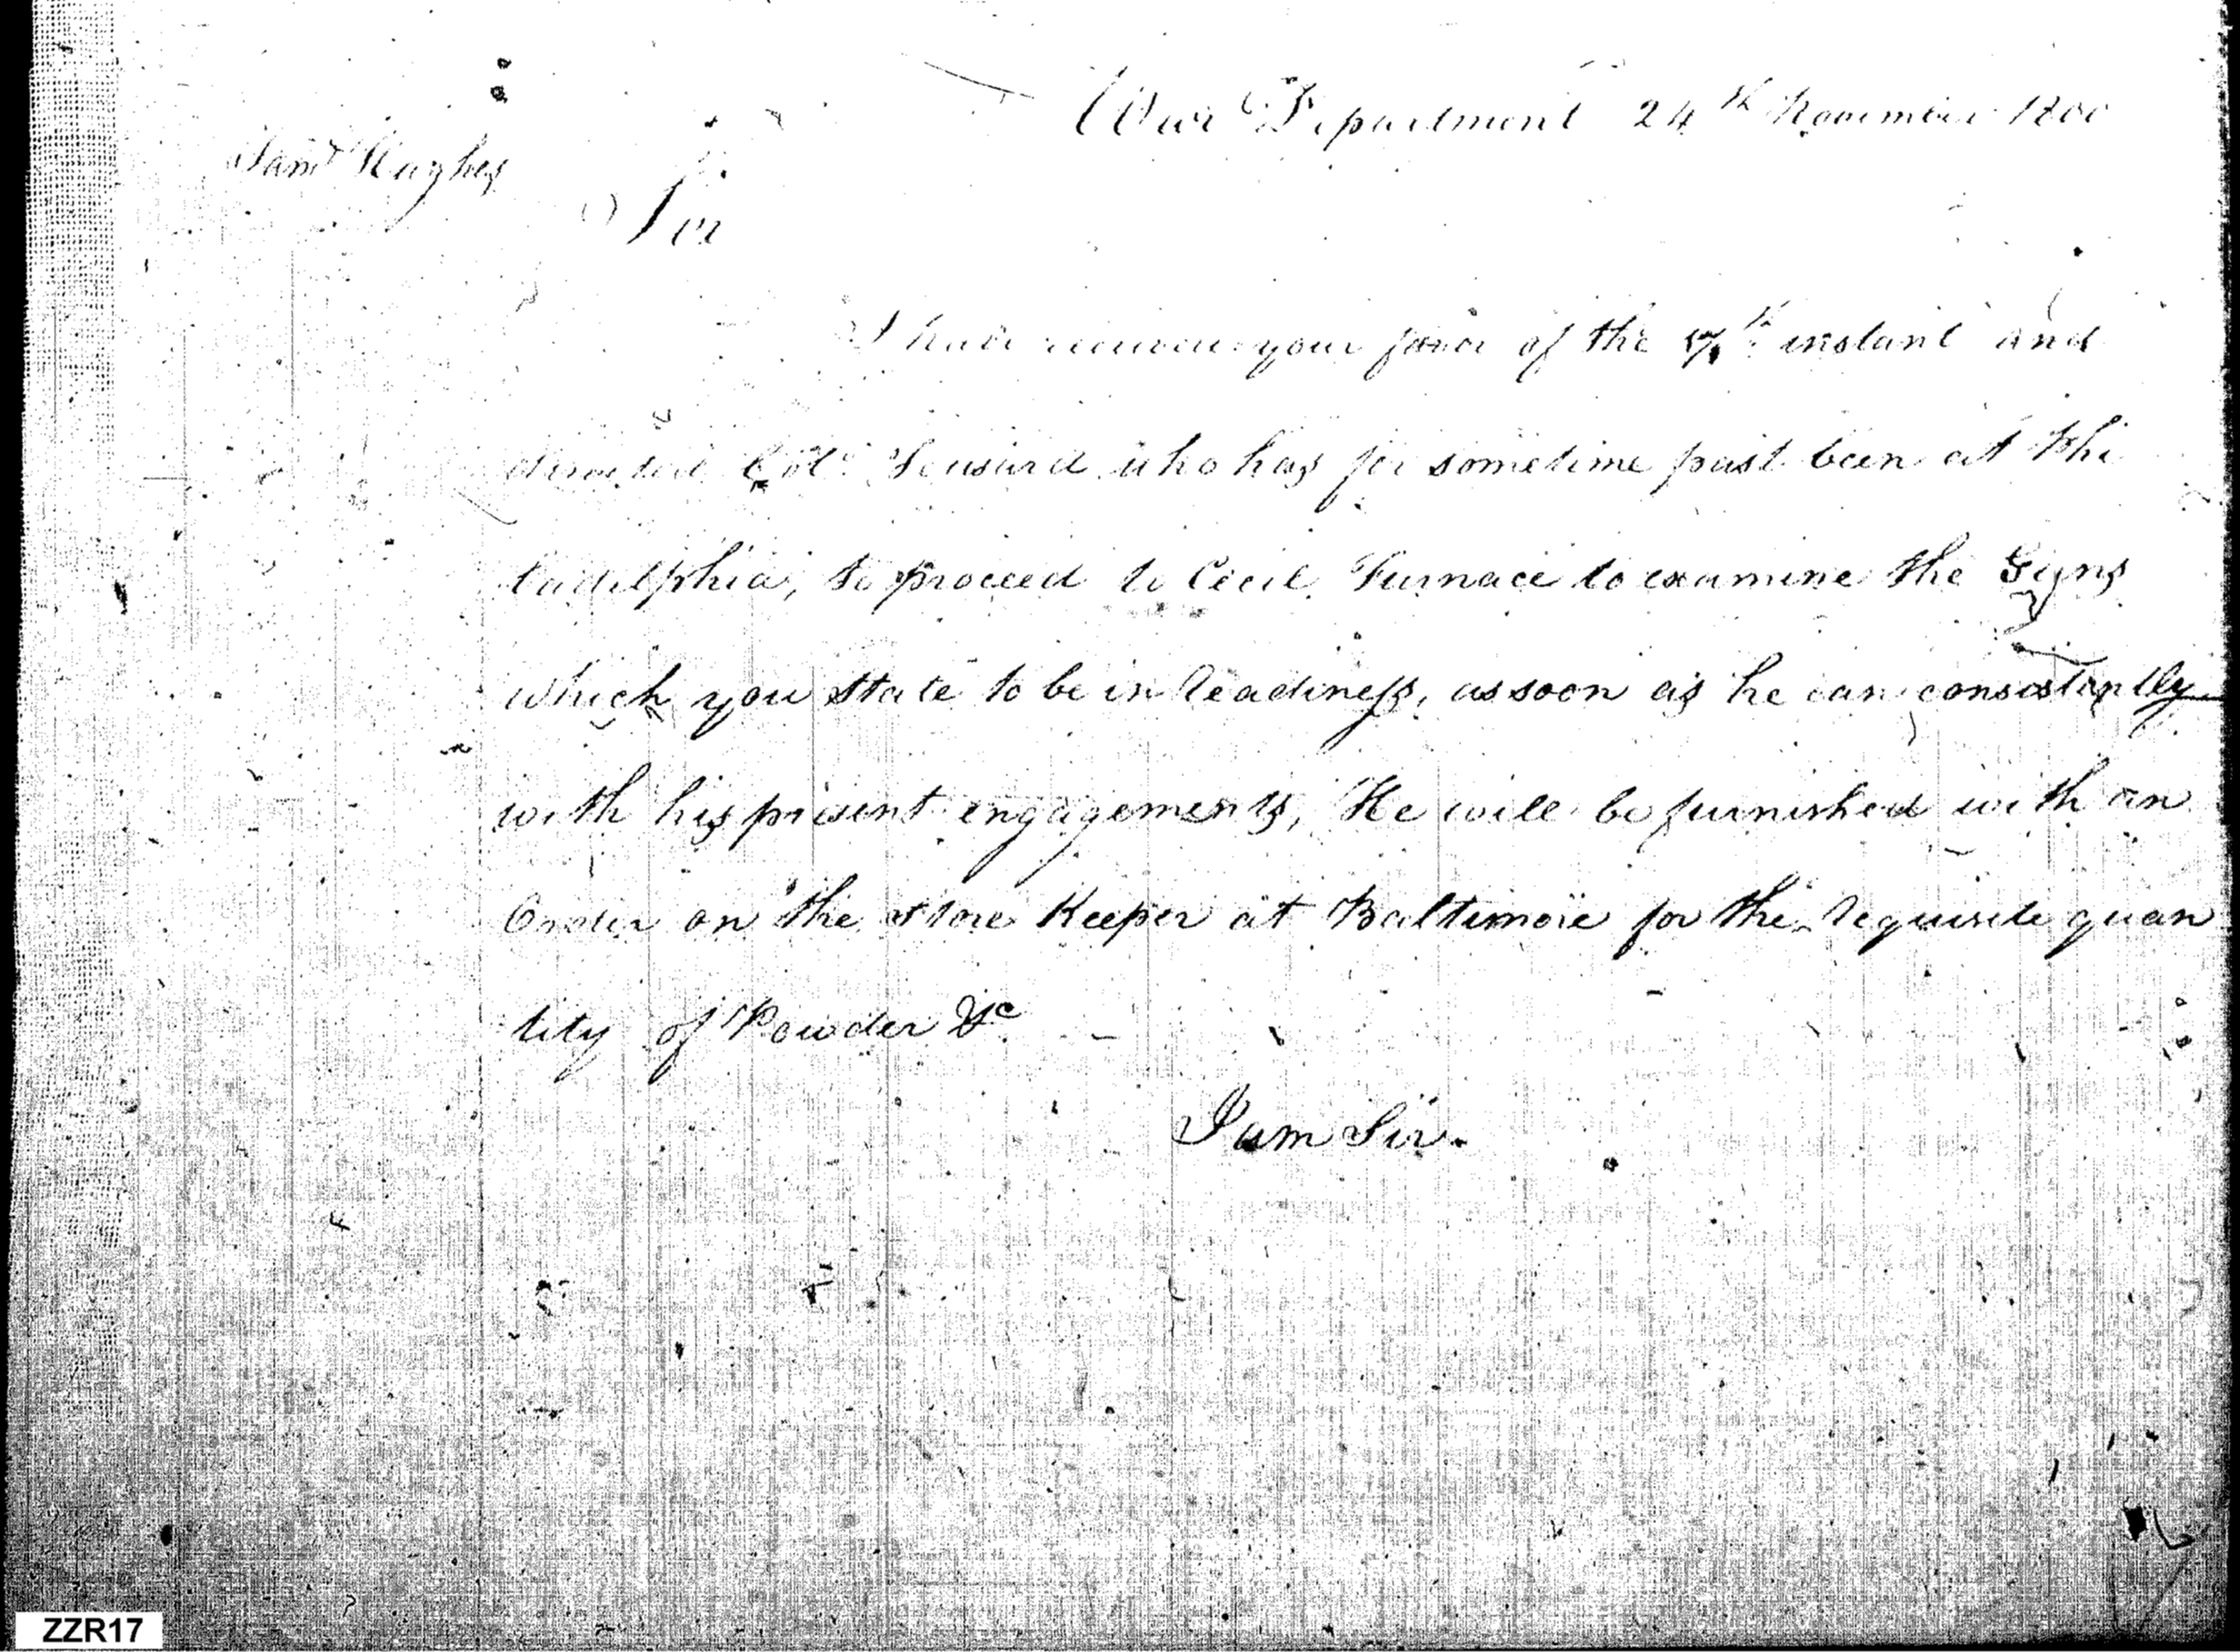 War Department 24th November 1800
Saml Hughes
Sir
I have received your favor of the 17th instant and
directed Colo. who has for sometime past been at Phi
ladelphia, to proceed to Cecil Furnace to examine the Guns
which you state to be in readiness, as soon as he can consistantly
with his present engagements, He will be furnished with an
Order on the store Keeper at Baltimore for the requisite quan
tity of Powder &c
I am Sir.
ZZR17